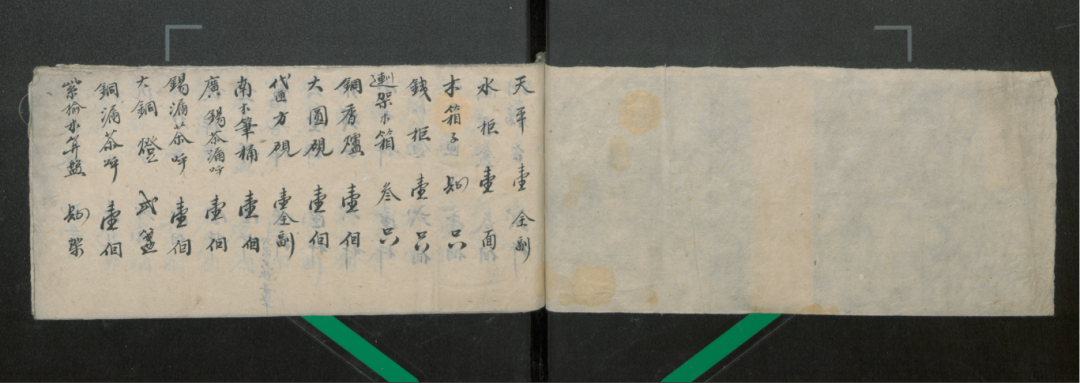 天平壹全副
水柜壹面
木箱子 口
銭柜壹口
架木箱叁口
銅香爐壹個
大圓硯壹個
代匣方硯壹全副
南木筆桶壹個
廣錫茶滴呼壹個
錫滴茶呼壹個
大銅燈弍盞
銅滴茶呼壹個
紫榆木算盤 架